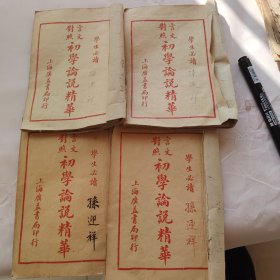 學生必讀
言文對照 初學論說精華
上海廣益書局印行
學生必讀
言文對照 初學論說精華
上海廣益書局印行
學生必讀
言文對照 初學論說精華
上海廣益書局印行
孫迎祥
學生必讀
言文對照 初學論說精華
上海廣益書局印行
孫迎祥